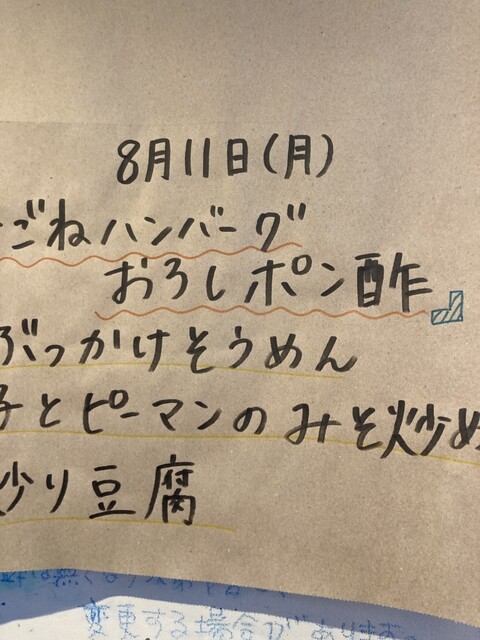 8月11日(月)
ごねハンバーグ
おろしポン酢
ぶっかけそうめん
子とピーマンのみそ炒め
炒り豆腐
変更する場合があります